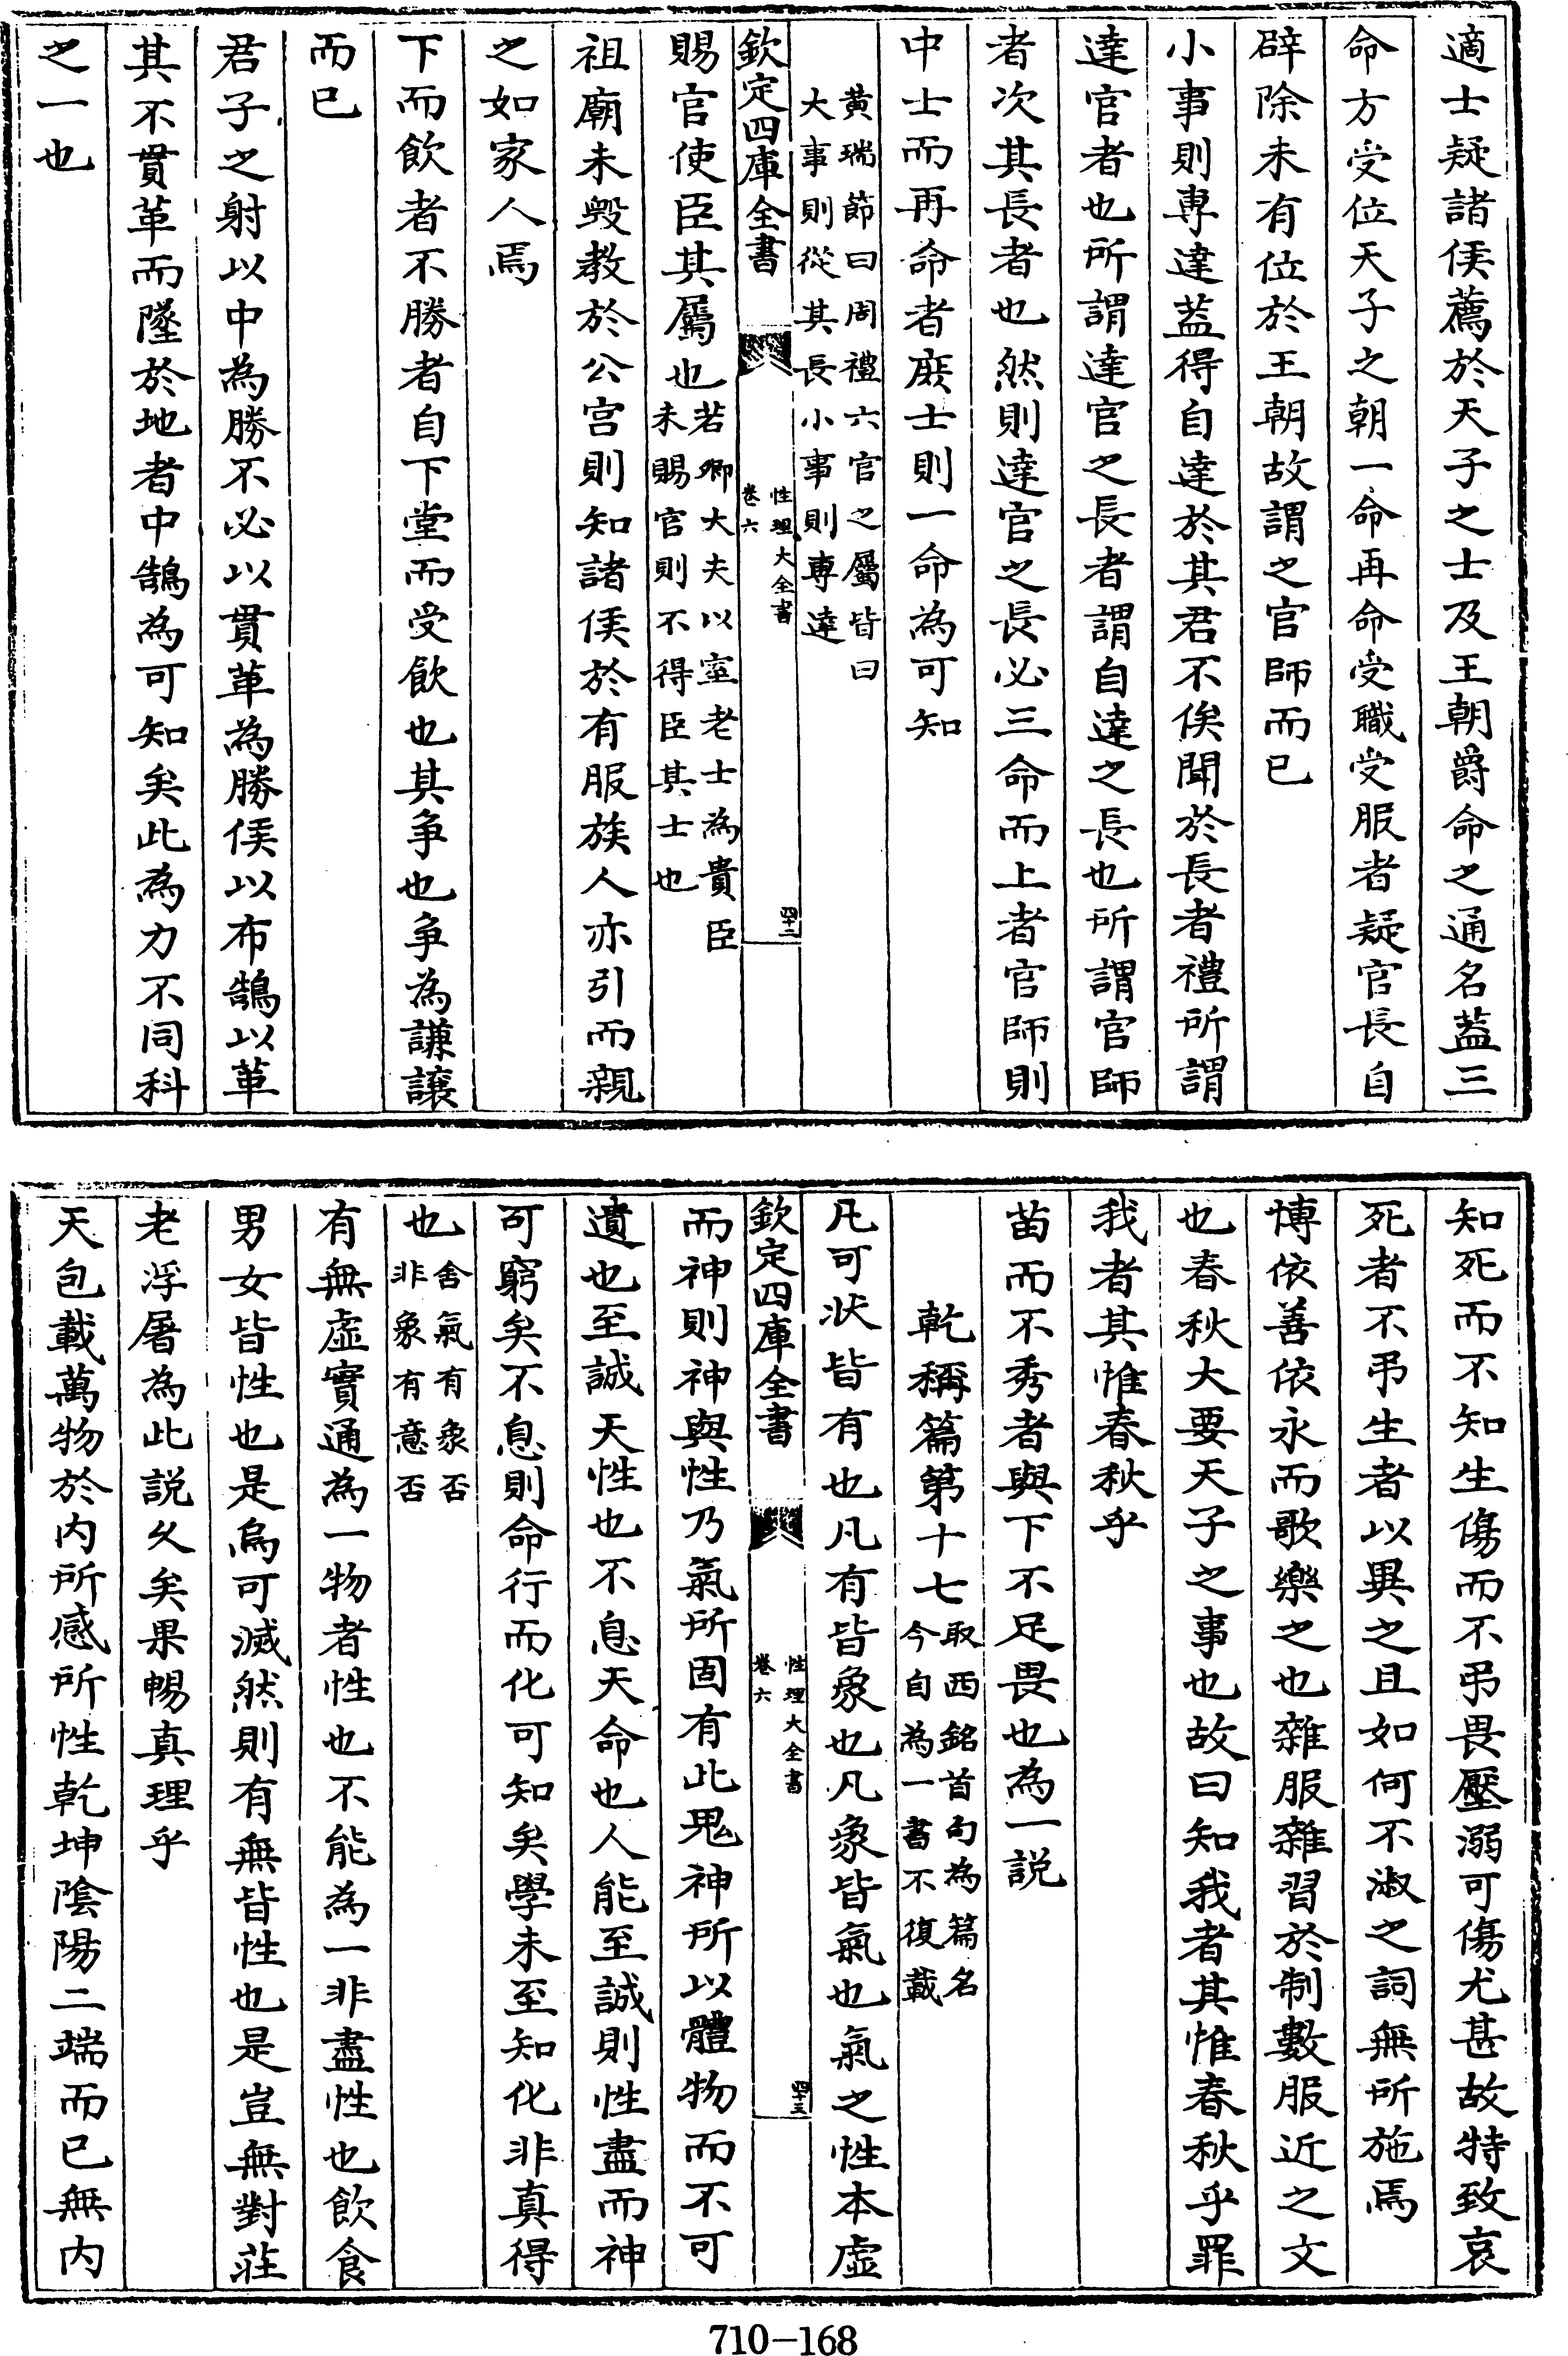 適士疑諸侯薦於天子之士及王朝爵命之通名葢三
命方受位天子之朝一命再命受職受服者疑官長自
辟除未有位於王朝故謂之官師而已
小事則專達葢得自達於其君不俟聞於長者禮所謂
達官者也所謂達官之長者謂自達之長也所謂官師
者次其長者也然則達官之長必三命而上者官師則
中士而再命者庶士則一命為可知
黄瑞節曰周禮六官之屬皆曰
大事則從其長小事則專達
欽定四庫全書
性理大全書
卷六
四十二
賜官使臣其屬也若卿大夫以室老士為貴臣
未賜官則不得臣其士也
祖廟未毀教於公宮則知諸侯於有服族人亦引而親
之如家人焉
下而飲者不勝者自下堂而受飲也其爭也爭為謙讓
而已
君子之射以中為勝不必以貫革為勝侯以布鵠以革
其不貫革而墜於地者中鵠為可知矣此為力不同科
之一也
知死而不知生傷而不弔畏壓溺可傷尤甚故特致哀
死者不弔生者以異之且如何不淑之詞無所施焉
博依善依永而歌樂之也雜服雜習於制數服近之文
也春秋大要天子之事也故曰知我者其惟春秋乎罪
我者其惟春秋乎
苗而不秀者與下不足畏也為一説
乾稱篇第十七取西銘首句為篇名
今自為一書不復載
凡可狀皆有也凡有皆象也凡象皆氣也氣之性本虛
欽定四庫全書
性理大全書
卷六
四十三
而神則神與性乃氣所固有此鬼神所以體物而不可
遺也至誠天性也不息天命也人能至誠則性盡而神
可窮矣不息則命行而化可知矣學未至知化非真得
也舍氣有象否
非象有意否
有無虛實通為一物者性也不能為一非盡性也飲食
男女皆性也是烏可滅然則有無皆性也是豈無對莊
老浮屠為此説乆矣果暢真理乎
天包載萬物於内所感所性乾坤陰陽二端而已無内
710-168